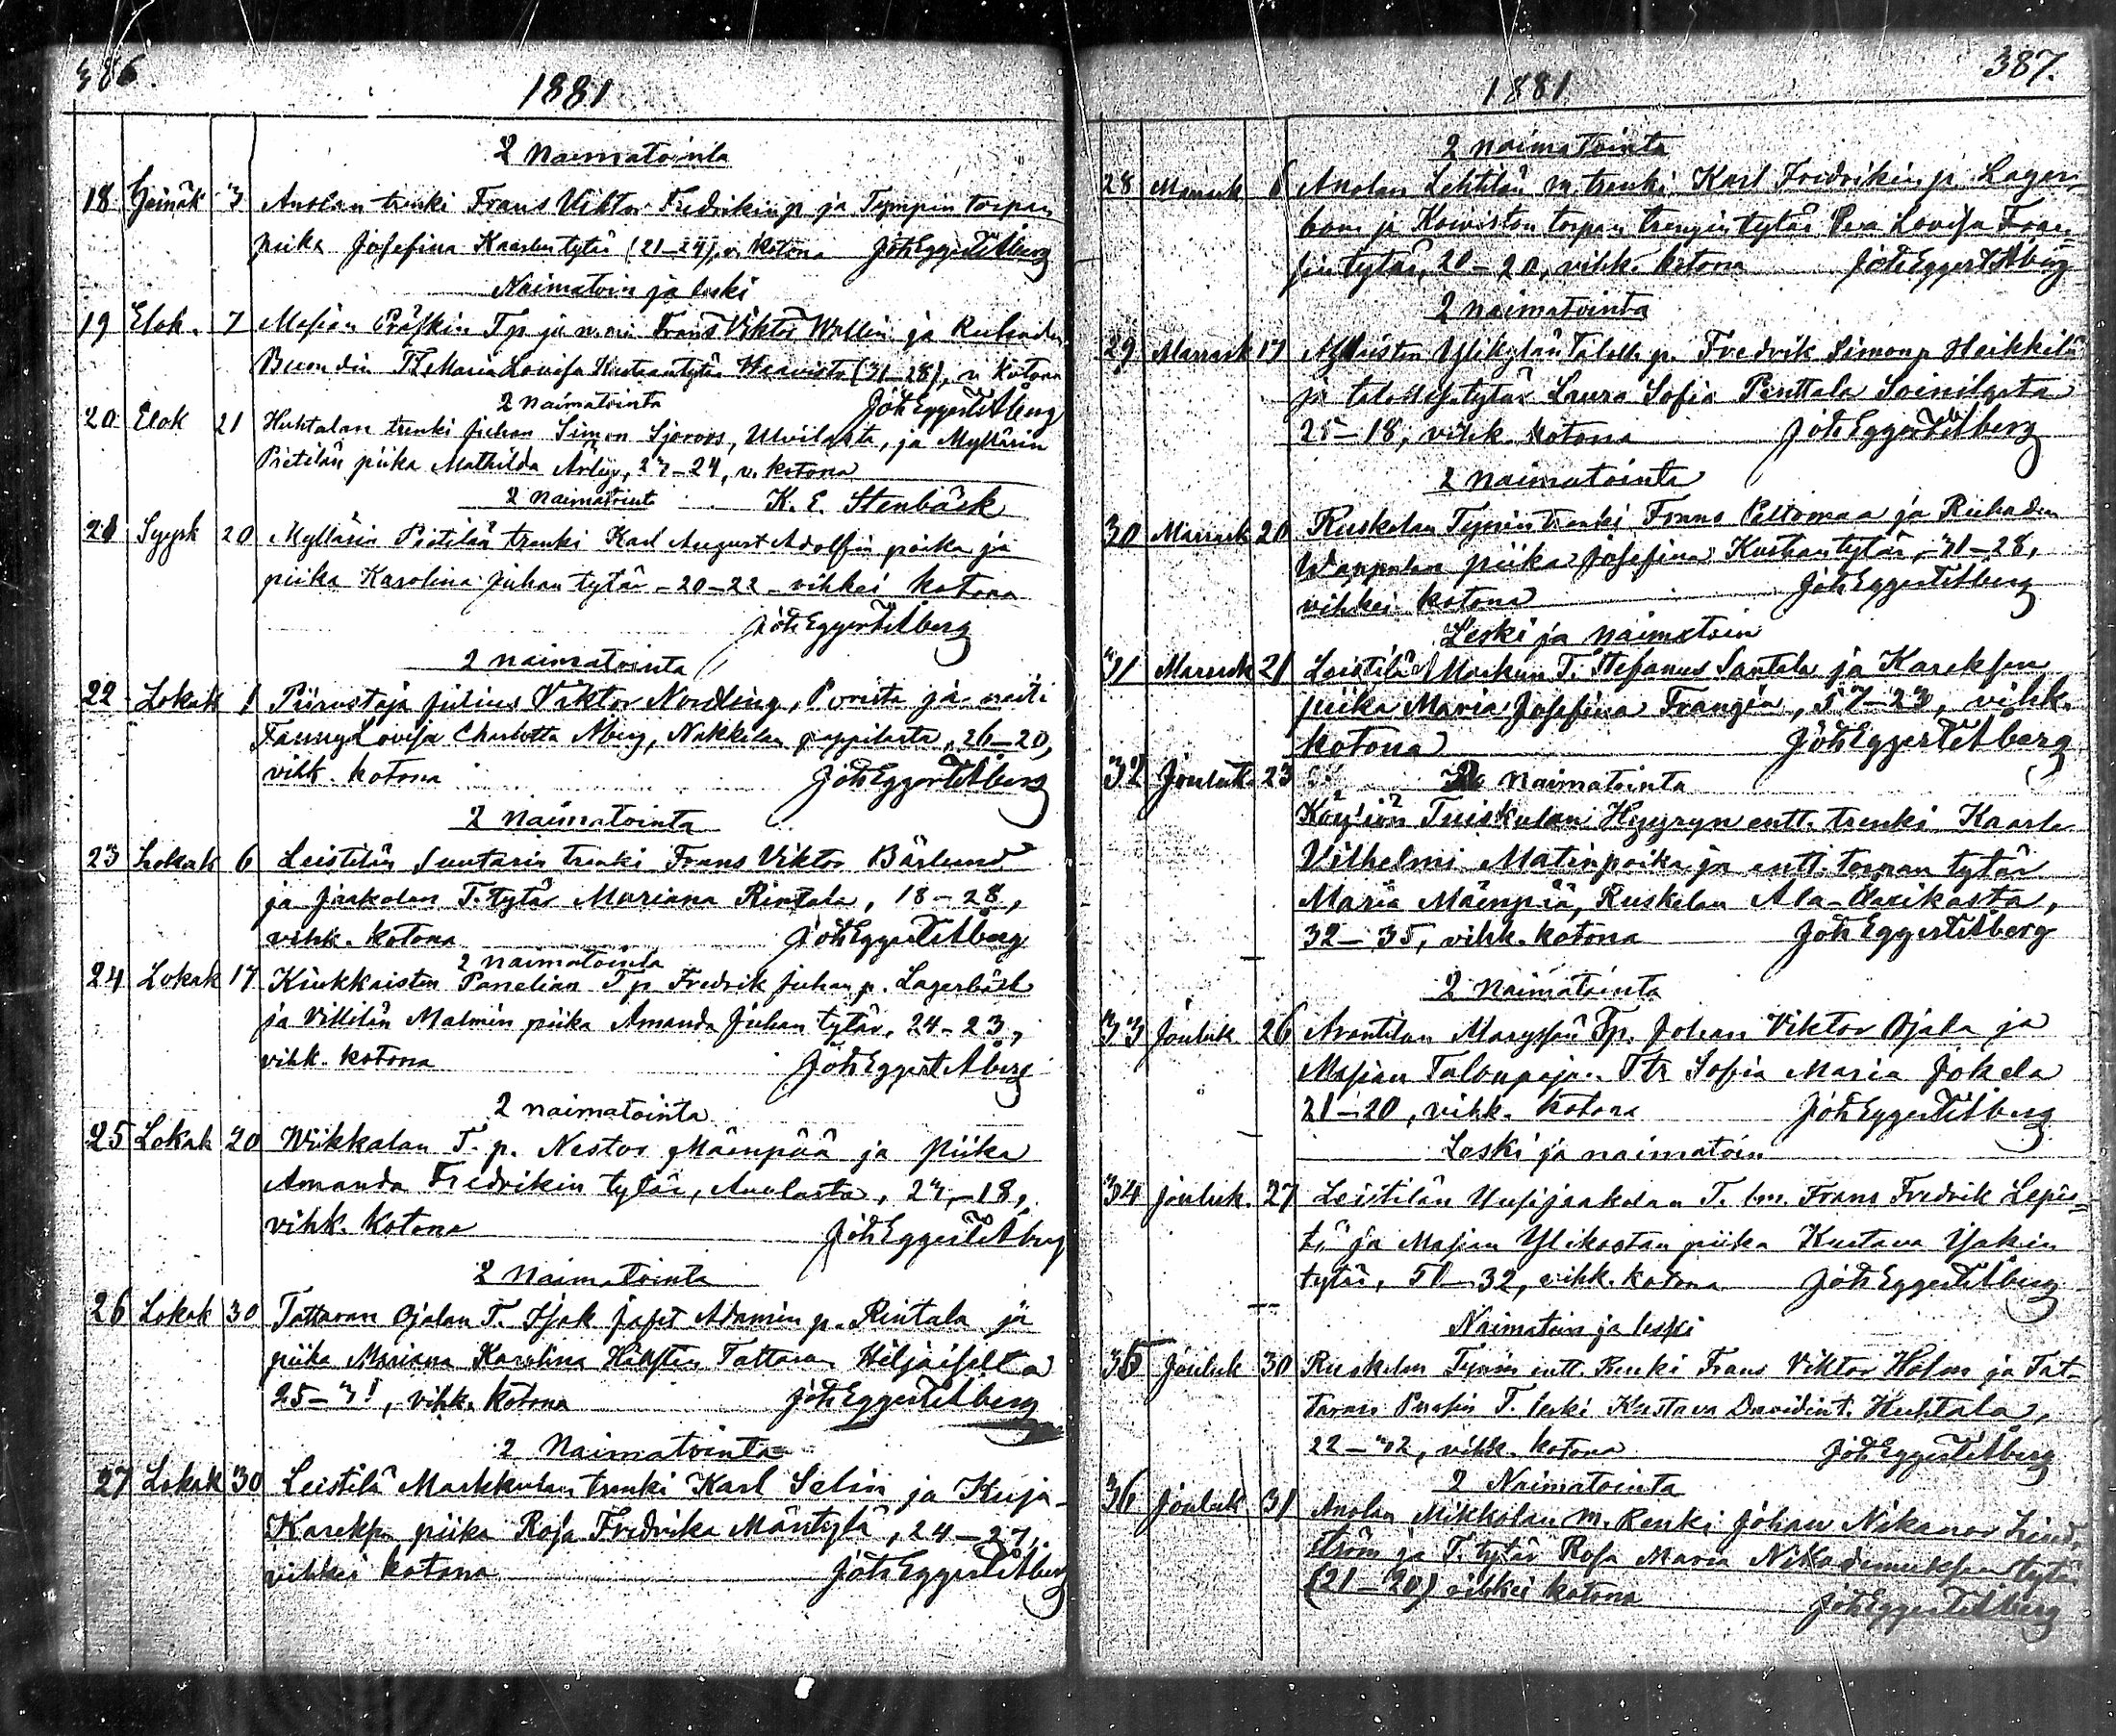 386.
1881
2 Naimatointa
18 Heinäk 3 Anolan trenki Frans Viktor Fredrikinp ja Tympin torpan
piika Josefina Kaarlen tytär (21–24), v. kotona Joh Eggert Åberg
Naimatoin ja leski
19 Elok. 7 Masian Tp ja Frans Viktor Wallin ja
Maria Lovisa Kustaantytär Haavisto (31–28), v. kotona
2 Naimatointa Joh Eggert Åberg
20 Elok 21 Huhtalan trenki Juhan Simon Sjöroos, Ulvilasta, ja Myllärin
Pietilän piika Mathilda 23–24, v. kotona
2 Naimatointa K. E. Stenbäck
21 Syysk 20 Myllärin Pietilän trenki Karl August Adolfin poika ja
piika Karolina Juhan tytär – 20–22 – vihkei kotona
Joh Eggert Åberg
2 naimatointa
22 Lokak 1 Piirustaja Julius Viktor Nordling, Porista ja neiti
Fanny Lovisa Charlotta Åberg, Nakkilan pappilasta, 26–20,
vihk. kotona Joh Eggert Åberg
2 Naimatointa
23 Lokak 6 Leistilän Suutarin trenki Frans Viktor Bärlund
ja Jaakolan T. tytär Mariana Rintala, 18–28,
vihk. kotona Joh Eggert Åberg
2 naimatointa
24 Lokak 17 Kiukkaisten Panelian Tp Fredrik Juhan p. Lagerbäck
ja Villilän Malmin piika Amanda Juhan tytär, 24–23,
vihk. kotona Joh Eggert Åberg
2 naimatointa
25 Lokak 20 Wiikkalan T. p. Nestor Mäenpää ja piika
Amanda Fredrikin tytär, Anolasta, 23–18,
vihk. kotona Joh Eggert Åberg
2 Naimatointa
26 Lokak 30 Tattaran Ojalan T. Isak Jafet Adamin p. Rintala ja
piika Mariana Karolina Tattaran
25–31, vihk. kotona Joh Eggert Åberg
2 Naimatointa
27 Lokak 30 Leistilä Markkulan trenki Karl Selin ja Kuja-
piika Rosa Fredrika Mäntylä, 24–27,
vihkei kotona Joh Eggert Åberg
387.
1881
2 naimatointa
28 Marrask 6 Anolan Lehtilän m. trenki Karl Fredrikin p. Lager-
bom ja Koiviston torpan trengin tytär Eeva Lovisa Fran-
sin tytär, 20–20, vihk. kotona Joh Eggert Åberg
2 naimatointa
29 Marrask 17 Ylikylän Taloll. p. Fredrik Simonp Heikkilä
ja talollis. tytär Laura Sofia Penttala Soinilasta
25–18, vihk. kotona Joh Eggert Åberg
2 naimatointa
30 Marrask 20 Ruskilan Tynin trenki Frans Peltomaa ja
piika Josefina Kustaan tytär, 31–28,
vihkei kotona Joh Eggert Åberg
Leski ja naimatoin
31 Marrask 21 Leistilä T. Stefanus Santala ja
piika Maria Josefina 57–23, vihk.
kotona Joh Eggert Åberg
32 Jouluk. 23 2 Naimatointa
Köyliön Tuiskulan entt. trenki Kaarle
Vilhelmi Matinpoika ja entt. torpan tytär
Maria Mäenpää, Ruskilan
32–35, vihk. kotona Joh Eggert Åberg
2 Naimatointa
33 Jouluk 26 Arantilan Tp. Johan Viktor Ojala ja
Masian Ttr Sofia Maria Jokela
21–20, vihk. kotona Joh Eggert Åberg
Leski ja naimatoin
34 Jouluk. 27 Leistilän Uusijaakolan T. Frans Fredrik Lepis-
tö ja Masian piika Kustava Isakin
tytär, 51–32, vihk. kotona Joh Eggert Åberg
Naimatoin ja leski
35 Jouluk 30 Ruskilan Tynin entt. Renki Frans Viktor Holm ja Tat-
taran T. leski Kustava Davidin t. Huhtala,
22–32, vihk. kotona Joh Eggert Åberg
2 Naimatointa
36 Jouluk 31 Anolan Mikkolan m. Renki Johan Nikanor Lind-
ström ja T. tytär Rosa Maria Nikodemuksen tytär
(21–20) vihkei kotona Joh Eggert Åberg